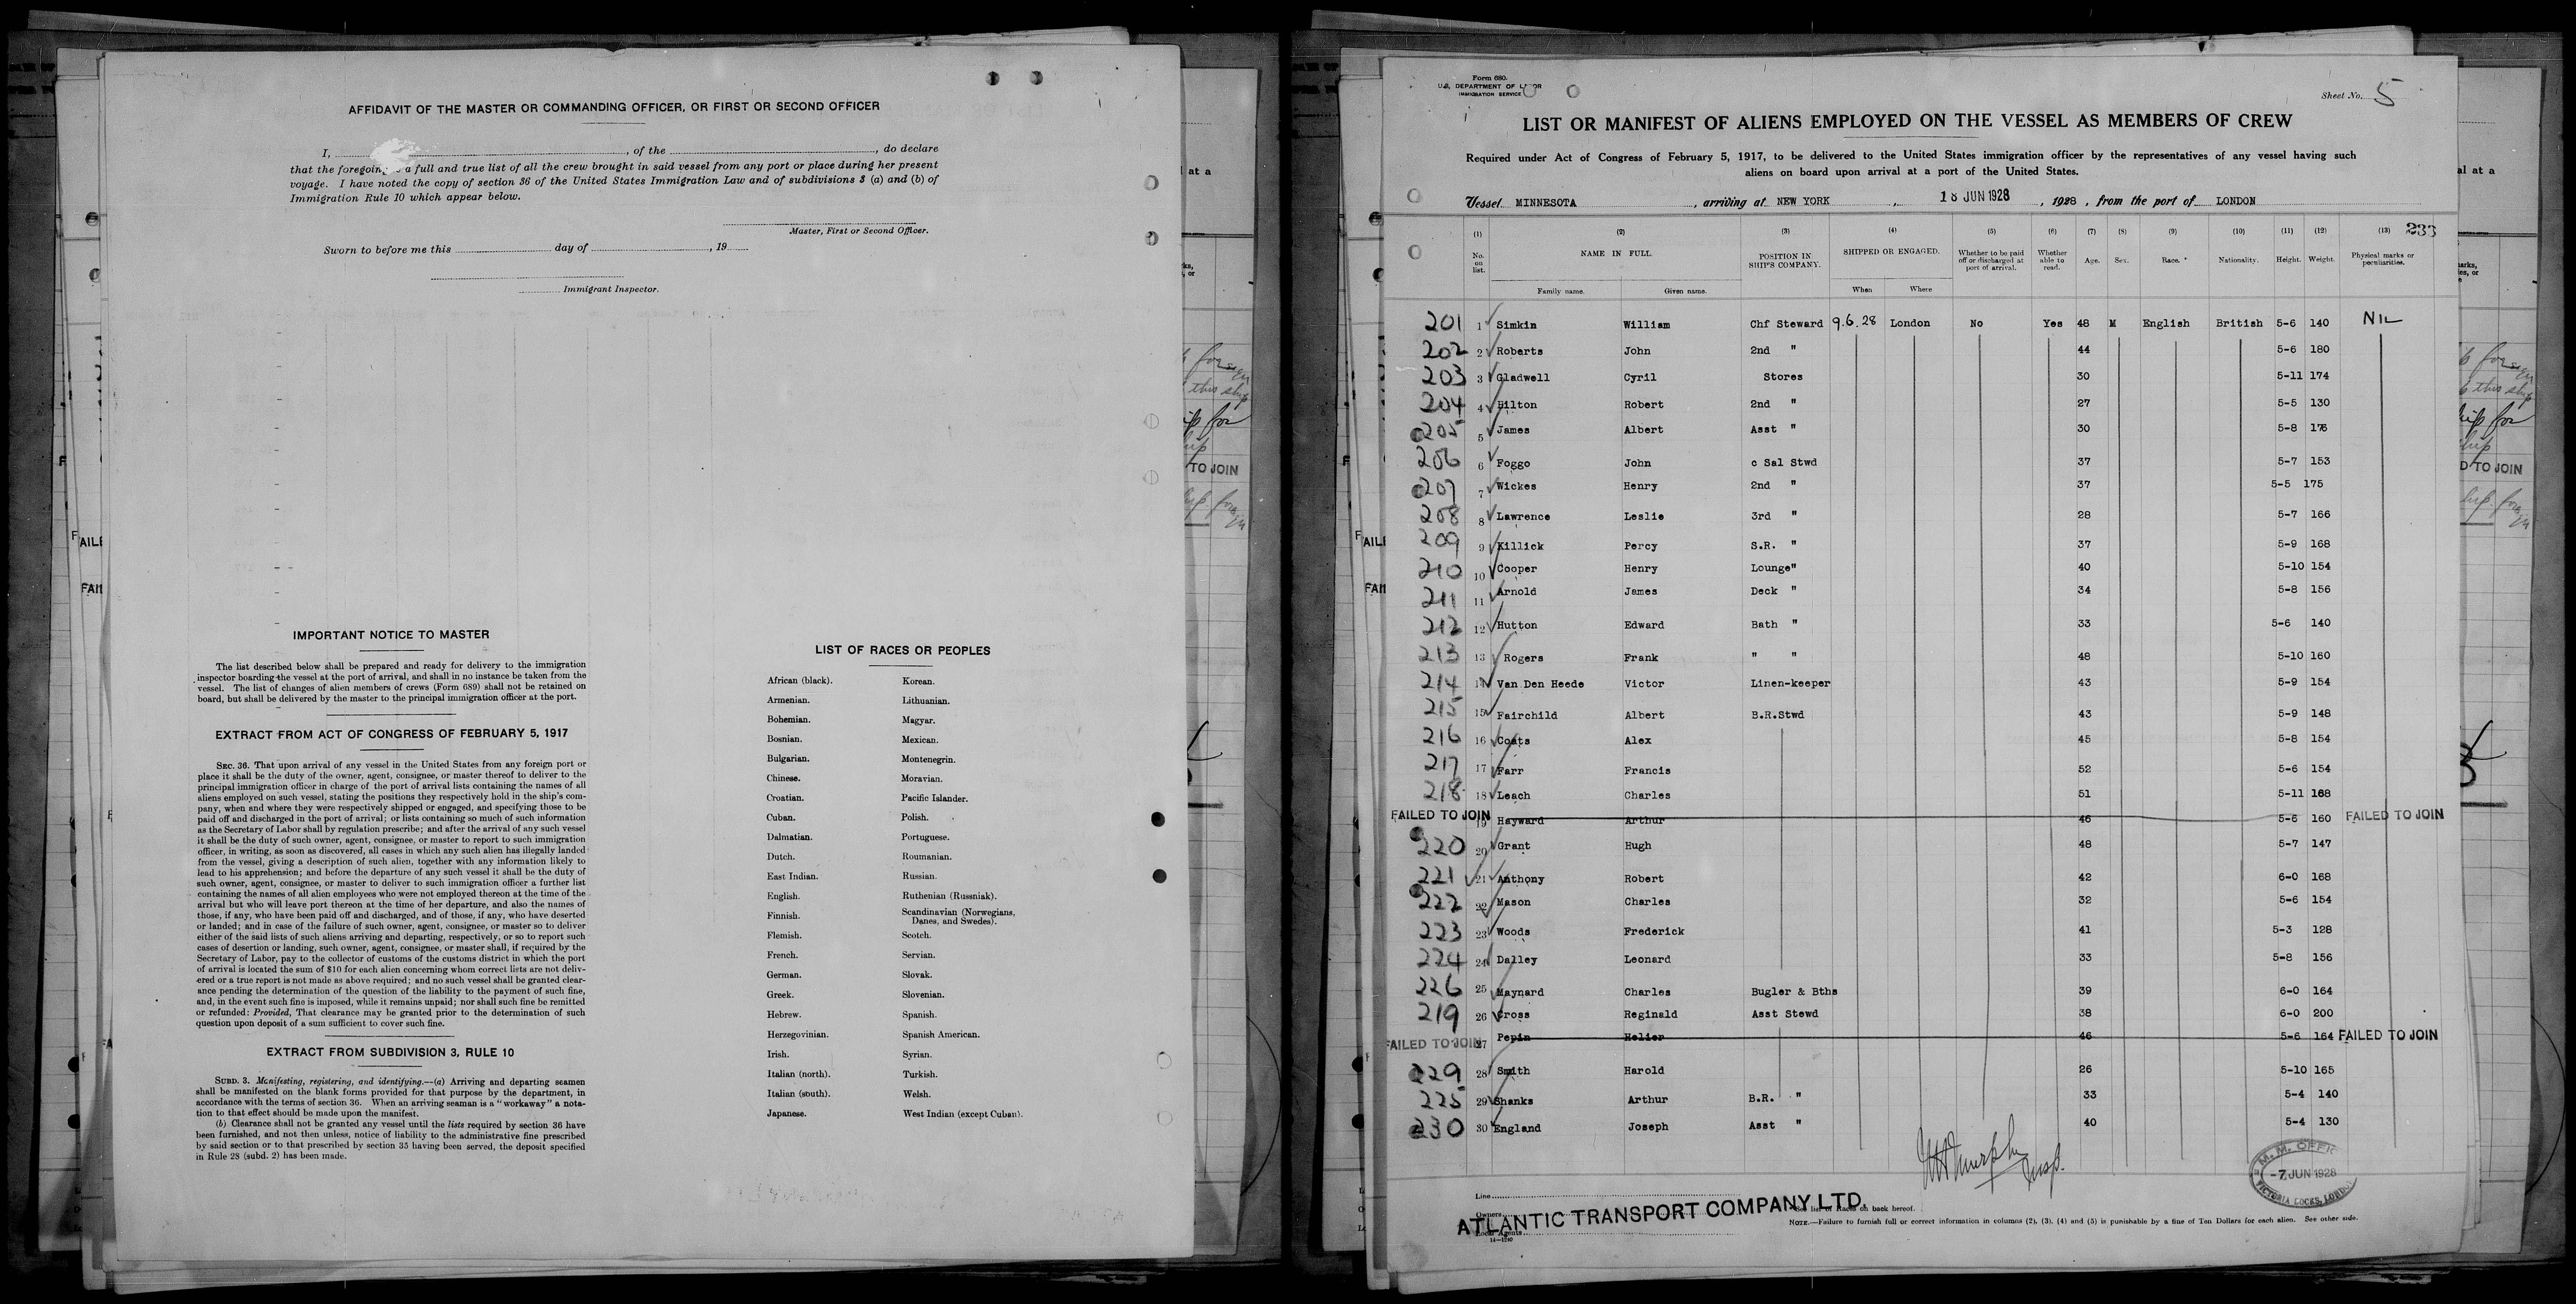 AFFIDAVIT OF THE MASTER OR COMMANDING OFFICER, OR FIRST OR SECOND OFFICER
I, , of the , do declare
that the foregoing a full and true list of all the crew brought in said vessel from any port or place during her present
voyage. I have noted the copy of section 36 of the United States Immigration Law and of subdivisions 3 (a) and (b) of
Immigration Rule 10 which appear below.
Master, First or Second Officer.
Sworn to before me this day of , 19
Immigrant Inspector.
IMPORTANT NOTICE TO MASTER
The list described below shall be prepared and ready for delivery to the immigration
inspector boarding the vessel at the port of arrival, and shall in no instance be taken from the
vessel. The list of changes of alien members of crews (Form 689) shall not be retained on
board, but shall be delivered by the master to the principal immigration officer at the port.
EXTRACT FROM ACT OF CONGRESS OF FEBRUARY 5, 1917
SEC. 36. That upon arrival of any vessel in the United States from any foreign port or
place it shall be the duty of the owner, agent, consignee, or master thereof to deliver to the
principal immigration officer in charge of the port of arrival lists containing the names of all
aliens employed on such vessel, stating the positions they respectively hold in the ship's com-
pany, when and where they were respectively shipped or engaged, and specifying those to be
paid off and discharged in the port of arrival; or lists containing so much of such information
as the Secretary of Labor shall by regulation prescribe; and after the arrival of any such vessel
it shall be the duty of such owner, agent, consignee, or master to report to such immigration
officer, in writing, as soon as discovered, all cases in which any such alien has illegally landed
from the vessel, giving a description of such alien, together with any information likely to
lead to his apprehension; and before the departure of any such vessel it shall be the duty of
such owner, agent, consignee, or master to deliver to such immigration officer a further list
containing the names of all alien employees who were not employed thereon at the time of the
arrival but who will leave port thereon at the time of her departure, and also the names of
those, if any, who have been paid off and discharged, and of those, if any, who have deserted
or landed; and in case of the failure of such owner, agent, consignee, or master so to deliver
either of the said lists of such aliens arriving and departing, respectively, or so to report such
cases of desertion or landing, such owner, agent, consignee, or master shall, if required by the
Secretary of Labor, pay to the collector of customs of the customs district in which the port
of arrival is located the sum of $10 for each alien concerning whom correct lists are not deliv-
ered or a true report is not made as above required; and no such vessel shall be granted clear-
ance pending the determination of the question of the liability to the payment of such fine,
and, in the event such fine is imposed, while it remains unpaid; nor shall such fine be remitted
or refunded: Provided, That clearance may be granted prior to the determination of such
question upon deposit of a sum sufficient to cover such fine.
EXTRACT FROM SUBDIVISION 3, RULE 10
SUBD. 3. Manifesting, registering, and identifying.—(a) Arriving and departing seamen
shall be manifested on the blank forms provided for that purpose by the department, in
accordance with the terms of section 36. When an arriving seaman is a "workaway" a nota-
tion to that effect should be made upon the manifest.
(b) Clearance shall not be granted any vessel until the lists required by section 36 have
been furnished, and not then unless, notice of liability to the administrative fine prescribed
by said section or to that prescribed by section 35 having been served, the deposit specified
in Rule 28 (subd. 2) has been made.
LIST OF RACES OR PEOPLES
African (black). Korean.
Armenian. Lithuanian.
Bohemian. Magyar.
Bosnian. Mexican.
Bulgarian. Montenegrin.
Chinese. Moravian.
Croatian. Pacific Islander.
Cuban. Polish.
Dalmatian. Portuguese.
Dutch. Roumanian.
East Indian. Russian.
English. Ruthenian (Russniak).
Finnish. Scandinavian (Norwegians,
Danes, and Swedes).
Flemish. Scotch.
French. Servian.
German. Slovak.
Greek. Slovenian.
Hebrew. Spanish.
Herzegovinian. Spanish American.
Irish. Syrian.
Italian (north). Turkish.
Italian (south). Welsh.
Japanese. West Indian (except Cuban).
Form 680.
U.S. DEPARTMENT OF LABOR
IMMIGRATION SERVICE
Sheet No. 5
LIST OR MANIFEST OF ALIENS EMPLOYED ON THE VESSEL AS MEMBERS OF CREW
Required under Act of Congress of February 5, 1917, to be delivered to the United States immigration officer by the representatives of any vessel having such
aliens on board upon arrival at a port of the United States.
Vessel MINNESOTA , arriving at NEW YORK , 18 JUN 1928 , 1928 , from the port of LONDON
(1) (2) (3) (4) (5) (6) (7) (8) (9) (10) (11) (12) (13) 233
No. on list. NAME IN FULL. POSITION IN SHIP'S COMPANY. SHIPPED OR ENGAGED. Whether to be paid off or discharged at port of arrival. Whether able to read. Age. Sex. Race.* Nationality. Height. Weight. Physical marks or peculiarities.
Family name. Given name. When Where
201 1 Simkin William Chf Steward 9.6.28 London No Yes 48 M English British 5-6 140 NIL
202 2 Roberts John 2nd " 44 5-6 180
203 3 Gladwell Cyril Stores 30 5-11 174
204 4 Hilton Robert 2nd " 27 5-5 130
205 5 James Albert Asst " 30 5-8 176
206 6 Foggo John c Sal Stwd 37 5-7 153
207 7 Wickes Henry 2nd " 37 5-5 175
208 8 Lawrence Leslie 3rd " 28 5-7 166
209 9 Killick Percy S.R. " 37 5-9 168
210 10 Cooper Henry Lounge" 40 5-10 154
211 11 Arnold James Deck " 34 5-8 156
212 12 Hutton Edward Bath " 33 5-6 140
213 13 Rogers Frank " " 48 5-10 160
214 14 Van Den Heede Victor Linen-keeper 43 5-9 154
215 15 Fairchild Albert B.R.Stwd 43 5-9 148
216 16 Coats Alex 45 5-8 154
217 17 Farr Francis 52 5-6 154
218 18 Leach Charles 51 5-11 168
FAILED TO JOIN 19 Hayward Arthur 46 5-6 160 FAILED TO JOIN
220 20 Grant Hugh 48 5-7 147
221 21 Anthony Robert 42 6-0 168
222 22 Mason Charles 32 5-6 154
223 23 Woods Frederick 41 5-3 128
224 24 Dalley Leonard 33 5-8 156
226 25 Maynard Charles Bugler & Bths 39 6-0 164
219 26 Cross Reginald Asst Stewd 38 6-0 200
FAILED TO JOIN 27 Pepin Helier 46 5-6 164 FAILED TO JOIN
229 28 Smith Harold 26 5-10 165
225 29 Shanks Arthur B.R. " 33 5-4 140
230 30 England Joseph Asst " 40 5-4 130
Murphy Insp.
M.M. OFFICE
-7 JUN 1928
VICTORIA DOCKS, LONDON
Line
Owners
ATLANTIC TRANSPORT COMPANY, LTD.
Local Agents
14—1240
See list of Races on back hereof.
NOTE.—Failure to furnish full or correct information in columns (2), (3), (4) and (5) is punishable by a fine of Ten Dollars for each alien. See other side.